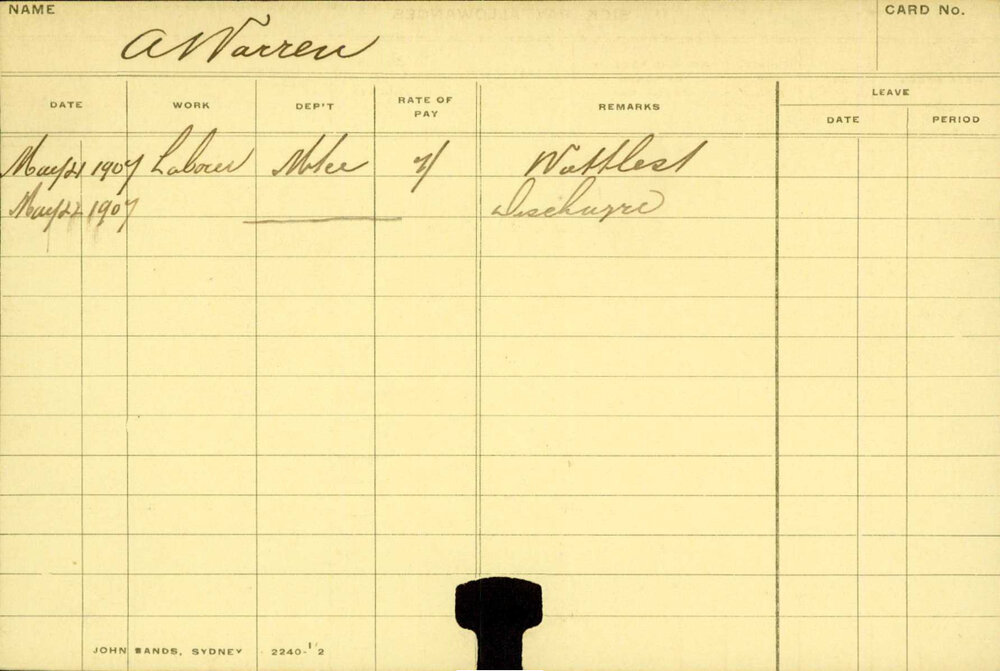 NAME
A Warren
CARD No.
DATE WORK DEP'T RATE OF PAY REMARKS LEAVE
DATE PERIOD
May 21 1907 Labour 7/ Wattle St
May 22 1907 Discharge
JOHN SANDS, SYDNEY 2240-1/2